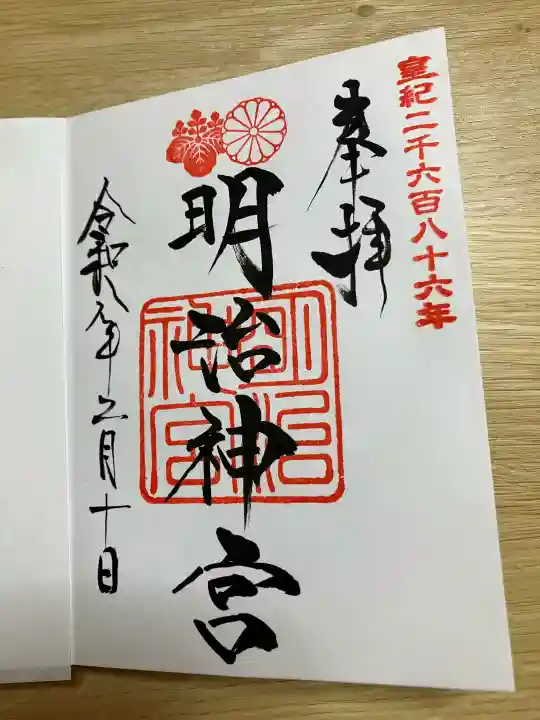 皇紀二千六百八十六年
奉拝
明治神宮
明治
神宮
令和八年 月十日